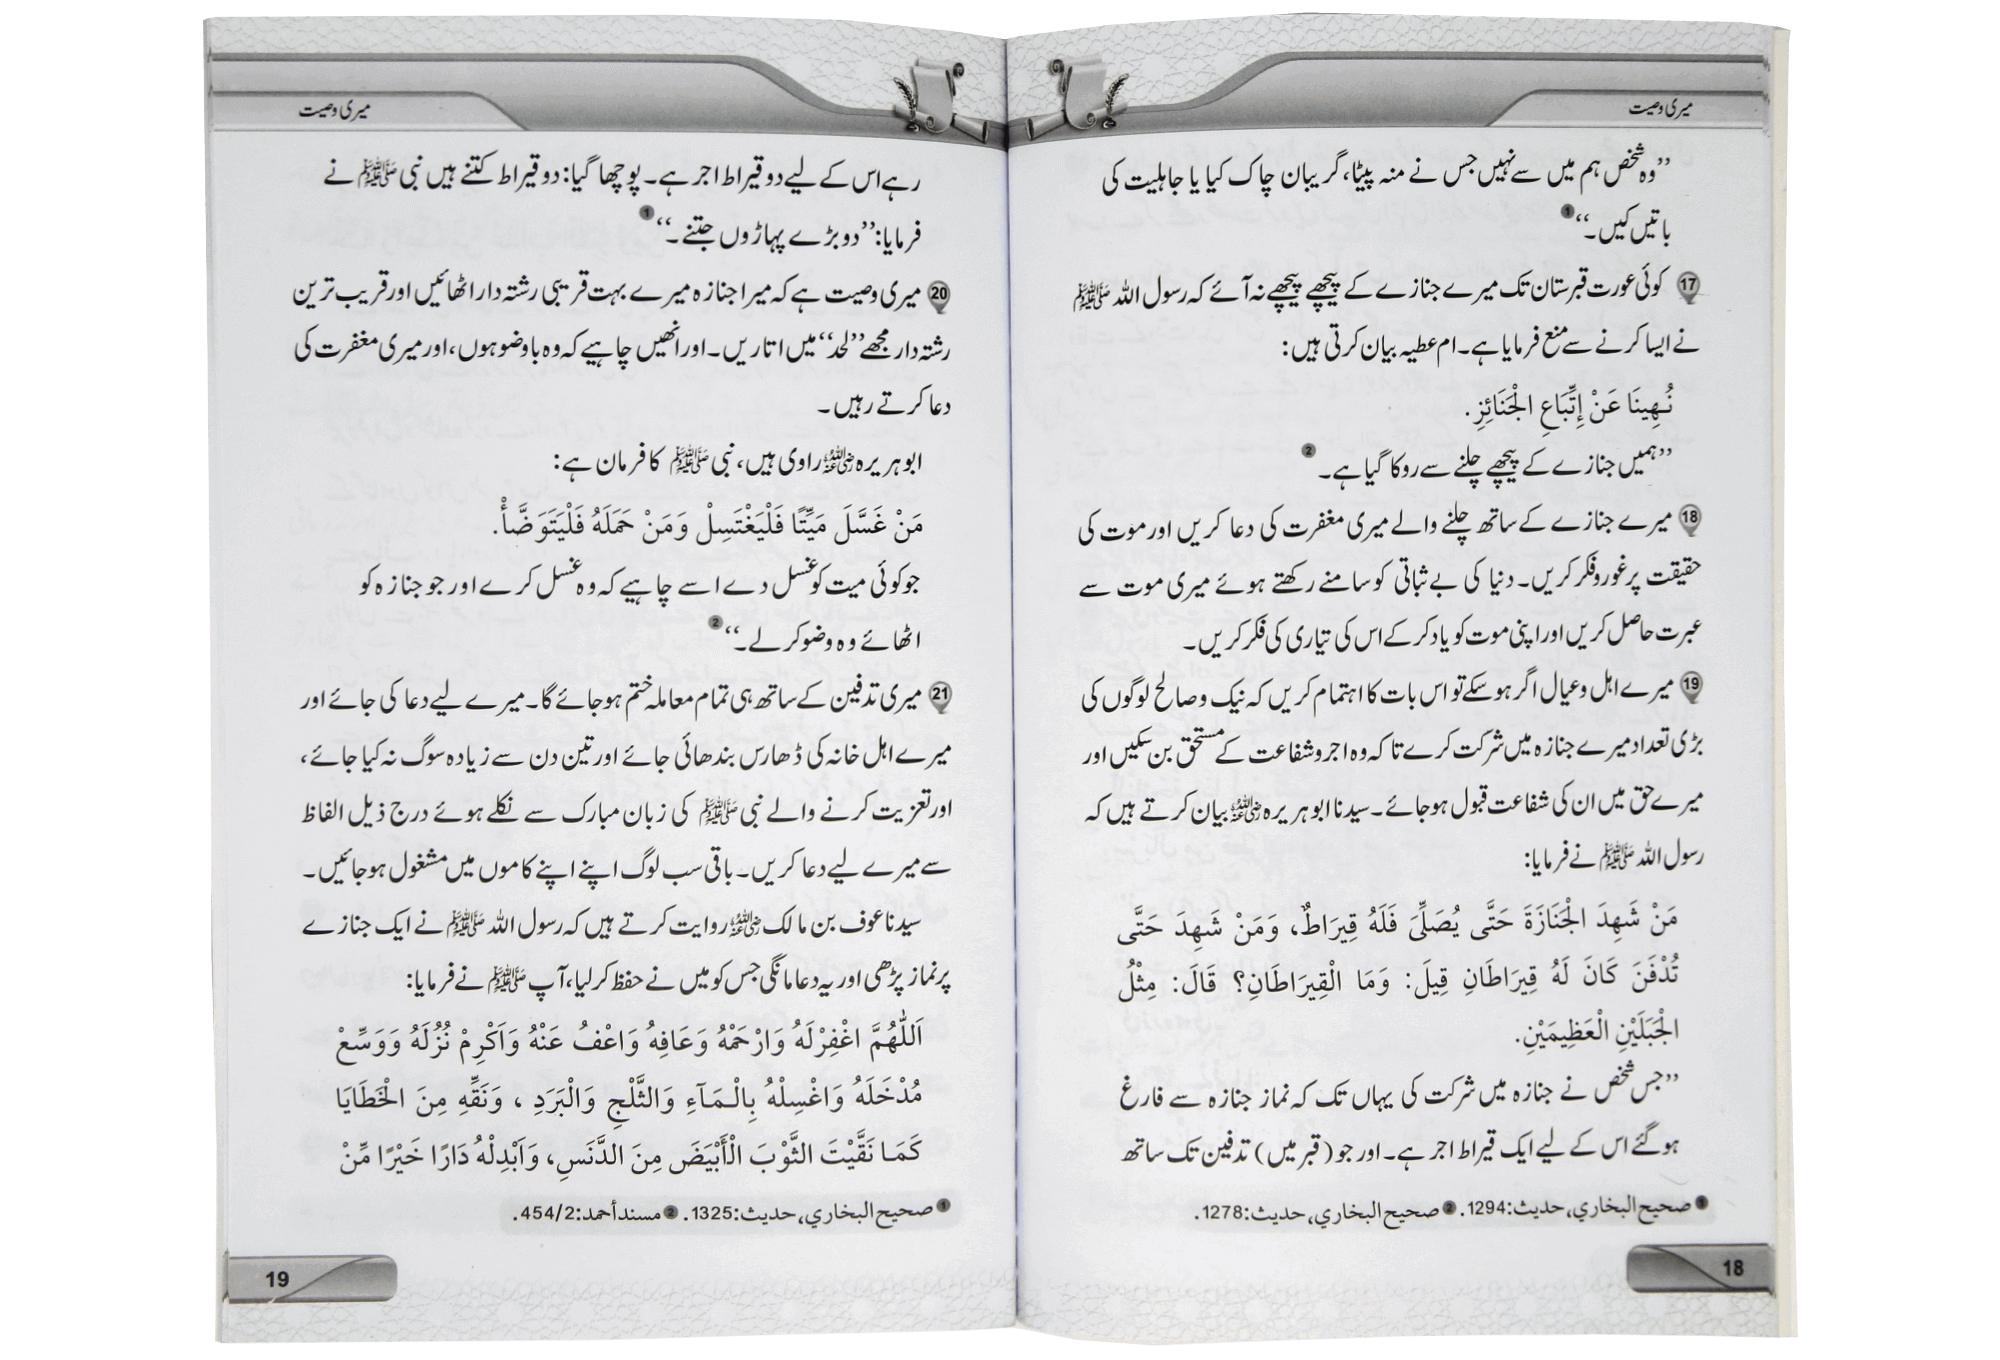 میری وصیت
’’وہ شخص ہم میں سے نہیں جس نے منہ پیٹا، گریبان چاک کیا یا جاہلیت کی
باتیں کیں۔‘‘ 1
17 کوئی عورت قبرستان تک میرے جنازے کے پیچھے پیچھے نہ آئے کہ رسول اللہ ﷺ
نے ایسا کرنے سے منع فرمایا ہے۔ ام عطیہ بیان کرتی ہیں:
نُهِينَا عَنْ إِتِّبَاعِ الْجَنَائِزِ.
’’ہمیں جنازے کے پیچھے چلنے سے روکا گیا ہے۔ 2
18 میرے جنازے کے ساتھ چلنے والے میری مغفرت کی دعا کریں اور موت کی
حقیقت پر غور و فکر کریں۔ دنیا کی بے ثباتی کو سامنے رکھتے ہوئے میری موت سے
عبرت حاصل کریں اور اپنی موت کو یاد کر کے اس کی تیاری کی فکر کریں۔
19 میرے اہل و عیال اگر ہو سکے تو اس بات کا اہتمام کریں کہ نیک و صالح لوگوں کی
بڑی تعداد میرے جنازہ میں شرکت کرے تاکہ وہ اجر و شفاعت کے مستحق بن سکیں اور
میرے حق میں ان کی شفاعت قبول ہو جائے۔ سیدنا ابوہریرہ رضی اللہ عنہ بیان کرتے ہیں کہ
رسول اللہ ﷺ نے فرمایا:
مَنْ شَهِدَ الْجَنَازَةَ حَتَّى يُصَلِّيَ فَلَهُ قِيرَاطٌ، وَمَنْ شَهِدَ حَتَّى
تُدْفَنَ كَانَ لَهُ قِيرَاطَانِ قِيلَ: وَمَا الْقِيرَاطَانِ؟ قَالَ: مِثْلُ
الْجَبَلَيْنِ الْعَظِيمَيْنِ.
’’جس شخص نے جنازہ میں شرکت کی یہاں تک کہ نماز جنازہ سے فارغ
ہو گئے اس کے لیے ایک قیراط اجر ہے۔ اور جو (قبر میں) تدفین تک ساتھ
1 صحيح البخاري، حديث:1294. 2 صحيح البخاري، حديث:1278.
18
میری وصیت
رہے اس کے لیے دو قیراط اجر ہے۔ پوچھا گیا: دو قیراط کتنے ہیں نبی ﷺ نے
فرمایا: ’’دو بڑے پہاڑوں جتنے۔‘‘ 1
20 میری وصیت ہے کہ میرا جنازہ میرے بہت قریبی رشتہ دار اٹھائیں اور قریب ترین
رشتہ دار مجھے ’’لحد‘‘ میں اتاریں۔ اور انھیں چاہیے کہ وہ باوضو ہوں، اور میری مغفرت کی
دعا کرتے رہیں۔
ابوہریرہ رضی اللہ عنہ راوی ہیں، نبی ﷺ کا فرمان ہے:
مَنْ غَسَّلَ مَيِّتًا فَلْيَغْتَسِلْ وَمَنْ حَمَلَهُ فَلْيَتَوَضَّأْ.
جو کوئی میت کو غسل دے اسے چاہیے کہ وہ غسل کرے اور جو جنازہ کو
اٹھائے وہ وضو کرلے۔‘‘ 2
21 میری تدفین کے ساتھ ہی تمام معاملہ ختم ہو جائے گا۔ میرے لیے دعا کی جائے اور
میرے اہل خانہ کی ڈھارس بندھائی جائے اور تین دن سے زیادہ سوگ نہ کیا جائے،
اور تعزیت کرنے والے نبی ﷺ کی زبان مبارک سے نکلے ہوئے درج ذیل الفاظ
سے میرے لیے دعا کریں۔ باقی سب لوگ اپنے اپنے کاموں میں مشغول ہو جائیں۔
سیدنا عوف بن مالک رضی اللہ عنہ روایت کرتے ہیں کہ رسول اللہ ﷺ نے ایک جنازے
پر نماز پڑھی اور یہ دعا مانگی جس کو میں نے حفظ کر لیا، آپ ﷺ نے فرمایا:
اَللّٰهُمَّ اغْفِرْلَهُ وَارْحَمْهُ وَعَافِهُ وَاعْفُ عَنْهُ وَاَكْرِمْ نُزُلَهُ وَوَسِّعْ
مُدْخَلَهُ وَاغْسِلْهُ بِالْمَآءِ وَالثَّلْجِ وَالْبَرَدِ ، وَنَقِّهِ مِنَ الْخَطَايَا
كَمَا نَقَّيْتَ الثَّوْبَ الْأَبْيَضَ مِنَ الدَّنَسِ، وَاَبْدِلْهُ دَارًا خَيْرًا مِّنْ
1 صحيح البخاري، حديث:1325. 2 مسند أحمد:454/2.
19